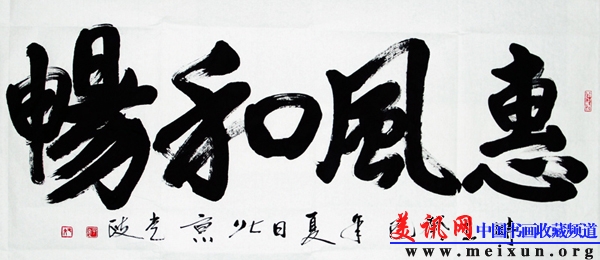 惠風和暢
年夏日北京
美讯网
中国书画收藏频道
www.meixun.org